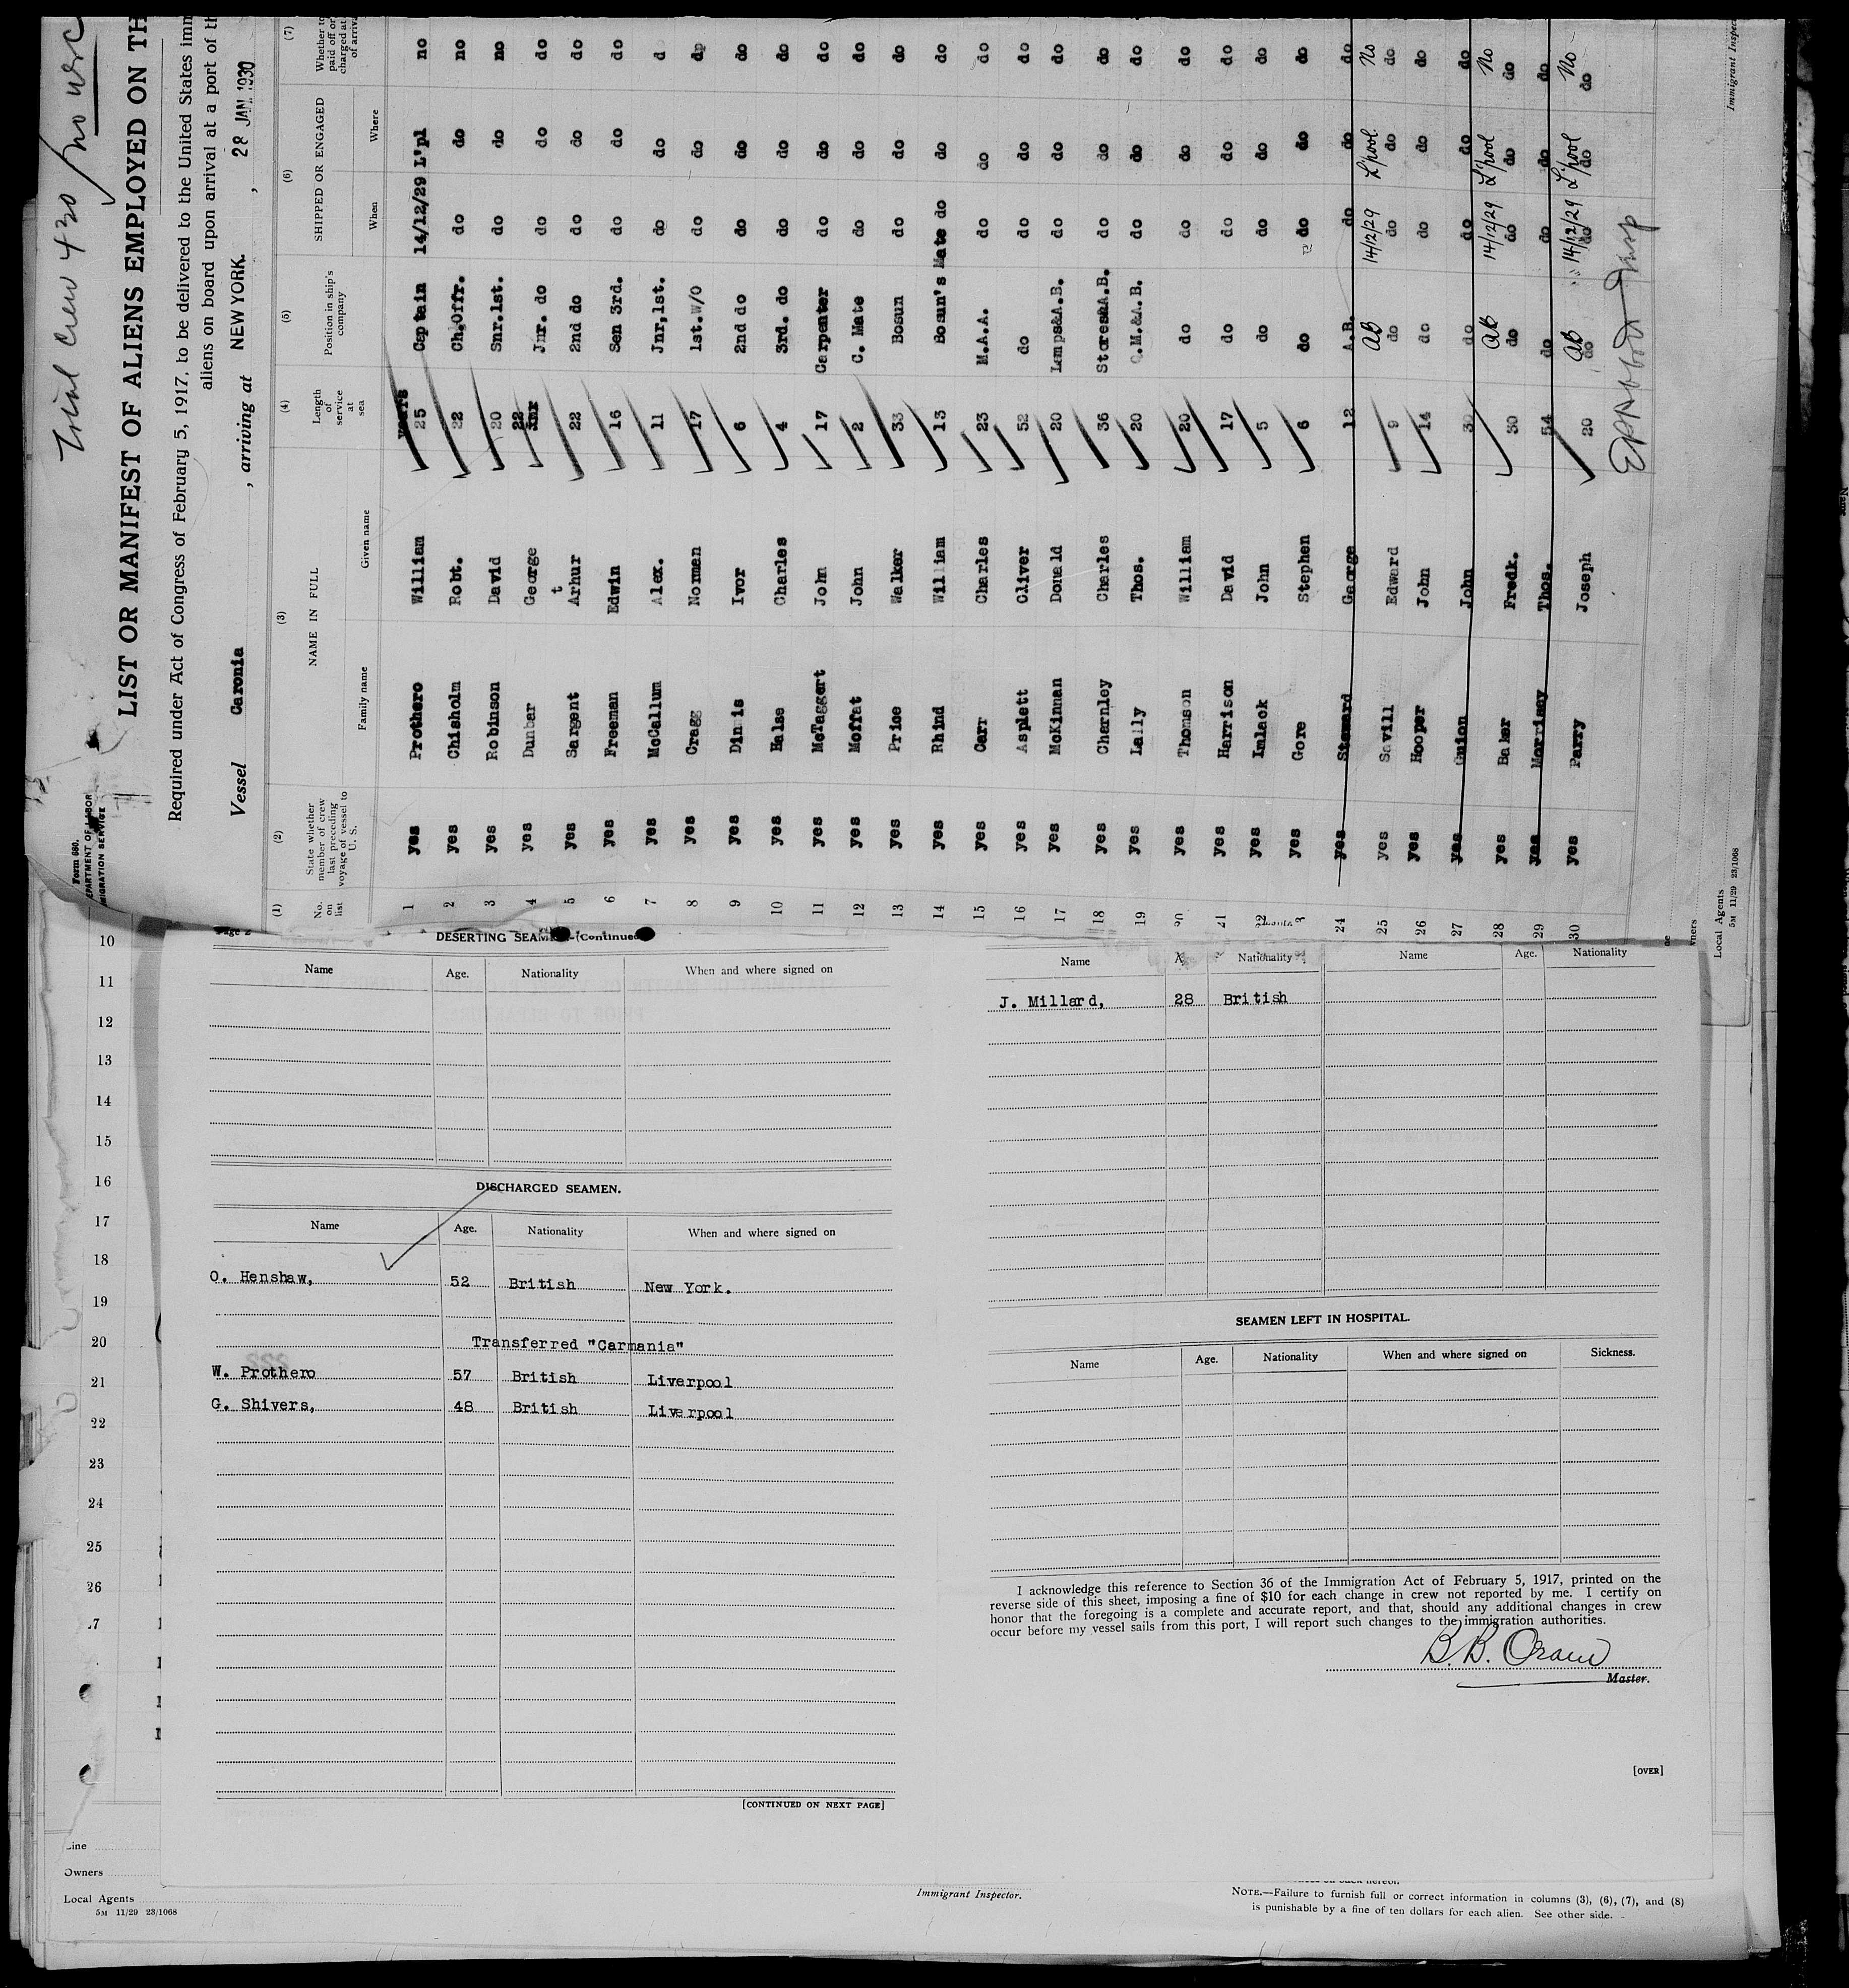 Total Crew 430 / no wrc
Form 680.
DEPARTMENT OF LABOR
IMMIGRATION SERVICE
LIST OR MANIFEST OF ALIENS EMPLOYED ON TH
Required under Act of Congress of February 5, 1917, to be delivered to the United States imm
aliens on board upon arrival at a port of th
Vessel Caronia , arriving at NEW YORK. , 28 JAN 1930
(1) (2) (3) (4) (5) (6) (7)
No. on list
State whether member of crew last preceding voyage of vessel to U. S.
NAME IN FULL
Family name Given name
Length of service at sea
Position in ship's company
SHIPPED OR ENGAGED
When Where
Whether to be paid off or discharged at port of arrival
years
1 yes Prothero William 25 Captain 14/12/29 L'pl no
2 yes Chisholm Robt. 22 Ch.Offr. do do no
3 yes Robinson David 20 Snr.1st. do do no
4 yes Dunbar George 22 Jnr. do do do do
5 yes Sargent Arthur 22 2nd do do do do
6 yes Freeman Edwin 16 Sen 3rd. do do do
7 yes McCallum Alex. 11 Jnr,1st. do do d
8 yes Cragg Norman 17 1st.W/O do do do
9 yes Dinnis Ivor 6 2nd do do do do
10 yes Halse Charles 4 3rd. do do do do
11 yes McTaggert John 17 Carpenter do do do
12 yes Moffat John 2 C. Mate do do do
13 yes Price Walker 33 Bosun do do do
14 yes Rhind William 13 Bosun's Mate do do do
15 yes Carr Charles 23 M.A.A. do do do
16 yes Asplett Oliver 52 do do do do
17 yes McKinnan Donald 20 Lamps&A.B. do do do
18 yes Charnley Charles 36 Stores&A.B. do do do
19 yes Lally Thos. 20 Q.M.&A.B. do do do
20 yes Thomson William 20 do do do do
21 yes Harrison David 17 do do do do
22 yes Imlack John 5 do do do do
yes Gore Stephen 6 do do do do
24 yes Steward George 12 A.B. do do do
25 yes Savill Edward 9 AB do 14/12/29 do L'pool do No do
26 yes Hooper John 14 do do do do
27 yes Guion John 30 do do do do
28 yes Baker Fredk. 30 AB do 14/12/29 do L'pool do No do
29 yes Morrisey Thos. 54 do do do do
30 yes Parry Joseph 20 AB do 14/12/29 do L'pool do No do
Immigrant Inspec
Local Agents
5M 11/29 23/1068
Page 2
DESERTING SEAMEN—(Continued)
Name Age. Nationality When and where signed on
DISCHARGED SEAMEN.
Name Age. Nationality When and where signed on
O. Henshaw, 52 British New York.
Transferred "Carmania"
W. Prothero 57 British Liverpool
G. Shivers, 48 British Liverpool
[CONTINUED ON NEXT PAGE]
Name Nationality Name Age. Nationality
J. Millard, 28 British
SEAMEN LEFT IN HOSPITAL.
Name Age. Nationality When and where signed on Sickness.
I acknowledge this reference to Section 36 of the Immigration Act of February 5, 1917, printed on the
reverse side of this sheet, imposing a fine of $10 for each change in crew not reported by me. I certify on
honor that the foregoing is a complete and accurate report, and that, should any additional changes in crew
occur before my vessel sails from this port, I will report such changes to the immigration authorities.
B. B. Oram
Master.
[OVER]
10
11
12
13
14
15
16
17
18
19
20
21
22
23
24
25
26
Line
Owners
Local Agents
5M 11/29 23/1068
Immigrant Inspector.
NOTE.—Failure to furnish full or correct information in columns (3), (6), (7), and (8)
is punishable by a fine of ten dollars for each alien. See other side.